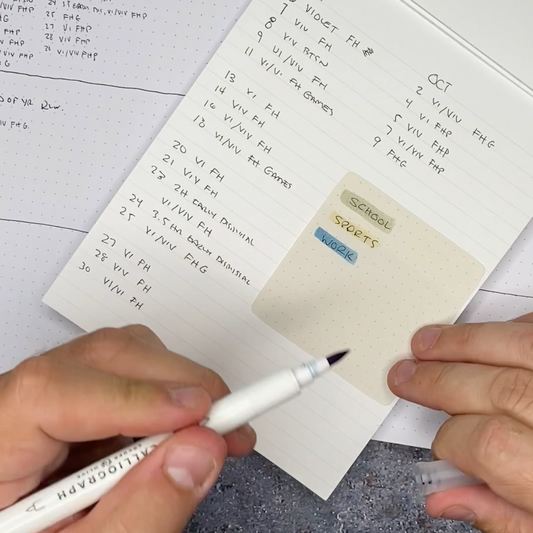 24 1ST EARLY DIS, VI/VIV FHP
VIV FHP
25 FHG
27 VI FHP
28 VIV FHP
VIV FHP
FHP
VIV FHG
VIOLET FH
7 VIV FH
8 VIV BTSN
9 VI/VIV FH
11 VI/VI FH GAMES
13 VI FH
14 VIV FH
16 VI/VIV FH
18 VI/VIV FH GAMES
20 VI FH
21 VIV FH
23 2H EARLY DISMISAL
VI/VIV FH
24 3.5 HR EARLY DISMISAL
25 VI/VIV FHG
27 VI FH
28 VIV FH
30 VI/VI FH
OCT
2 VI/VIV FHG
4 VI FHP
5 VIV FHP
7 VI/VIV FHP
9 FHG
SCHOOL
SPORTS
WORK
CALLIOGRAPH